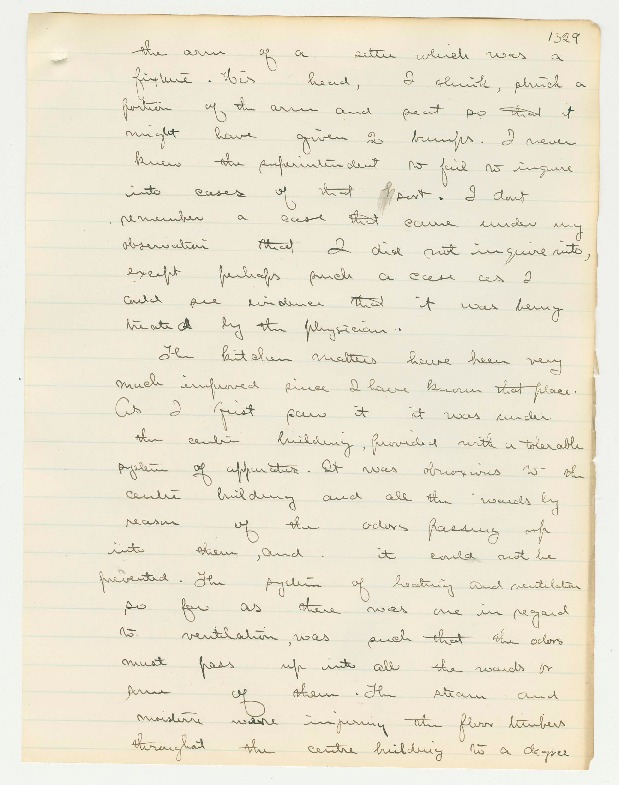 1329
the arm of a settee which was a
fixture. His head, I think, struck a
portion of the arm and seat so that it
might have given 2 bumps. I never
knew the superintendent to fail to inquire
into cases of that sort. I dont
remember a case that came under my
observation that I did not inquire into,
except perhaps such a case as I
could see evidence that it was being
treated by the physician.
The kitchen matters have been very
much improved since I have known that place.
As I first saw it it was under
the centre building, provided with a tolerable
system of apparatus. It was obnoxious to the
centre building and all the wards by
reason of the odors passing up
into them, and it could not be
prevented. The system of heating and ventilation
so far as there was one in regard
to ventilation, was such that the odors
must pass up into all the wards or
some of them. The steam and
moisture were injuring the floor timbers
throughout the centre building to a degree